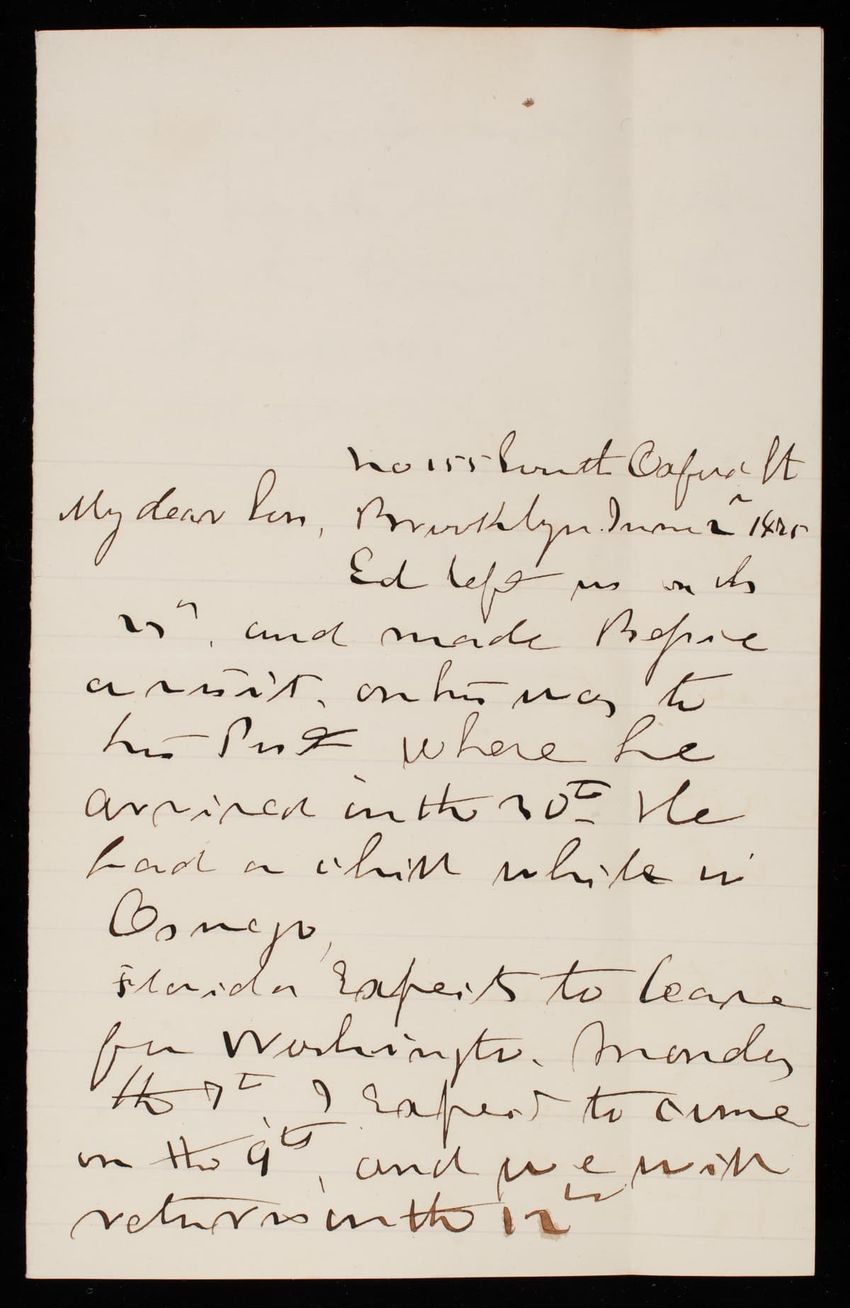 No 155 South Oxford St
My dear Son, Brooklyn June 2nd
Ed left us on the
and made Bessie
a visit, on his way to
his Post where he
arrived on the 30th He
had a chill while in
Oswego,
Florida Expects to leave
for Washington. Monday
the 7th, I Expect to come
on the 9th, and we will
return on the 12th